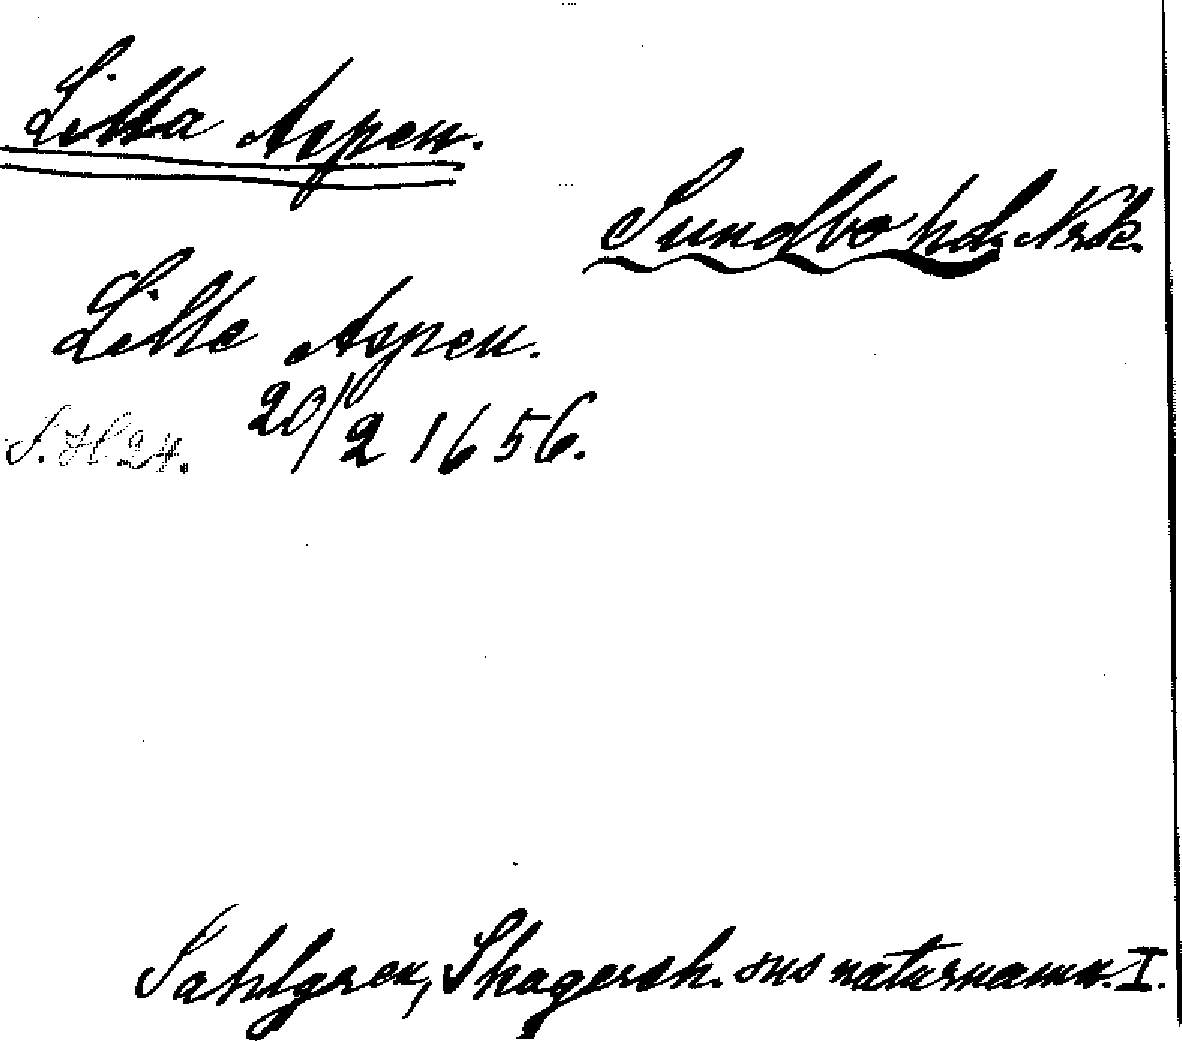 Lilla Aspen.
Sundbo hd, Nrk.
Lille Aspen.
20/2 1656.
S. H. 24.
Sahlgren, Skagersh. sns naturnamn. I.